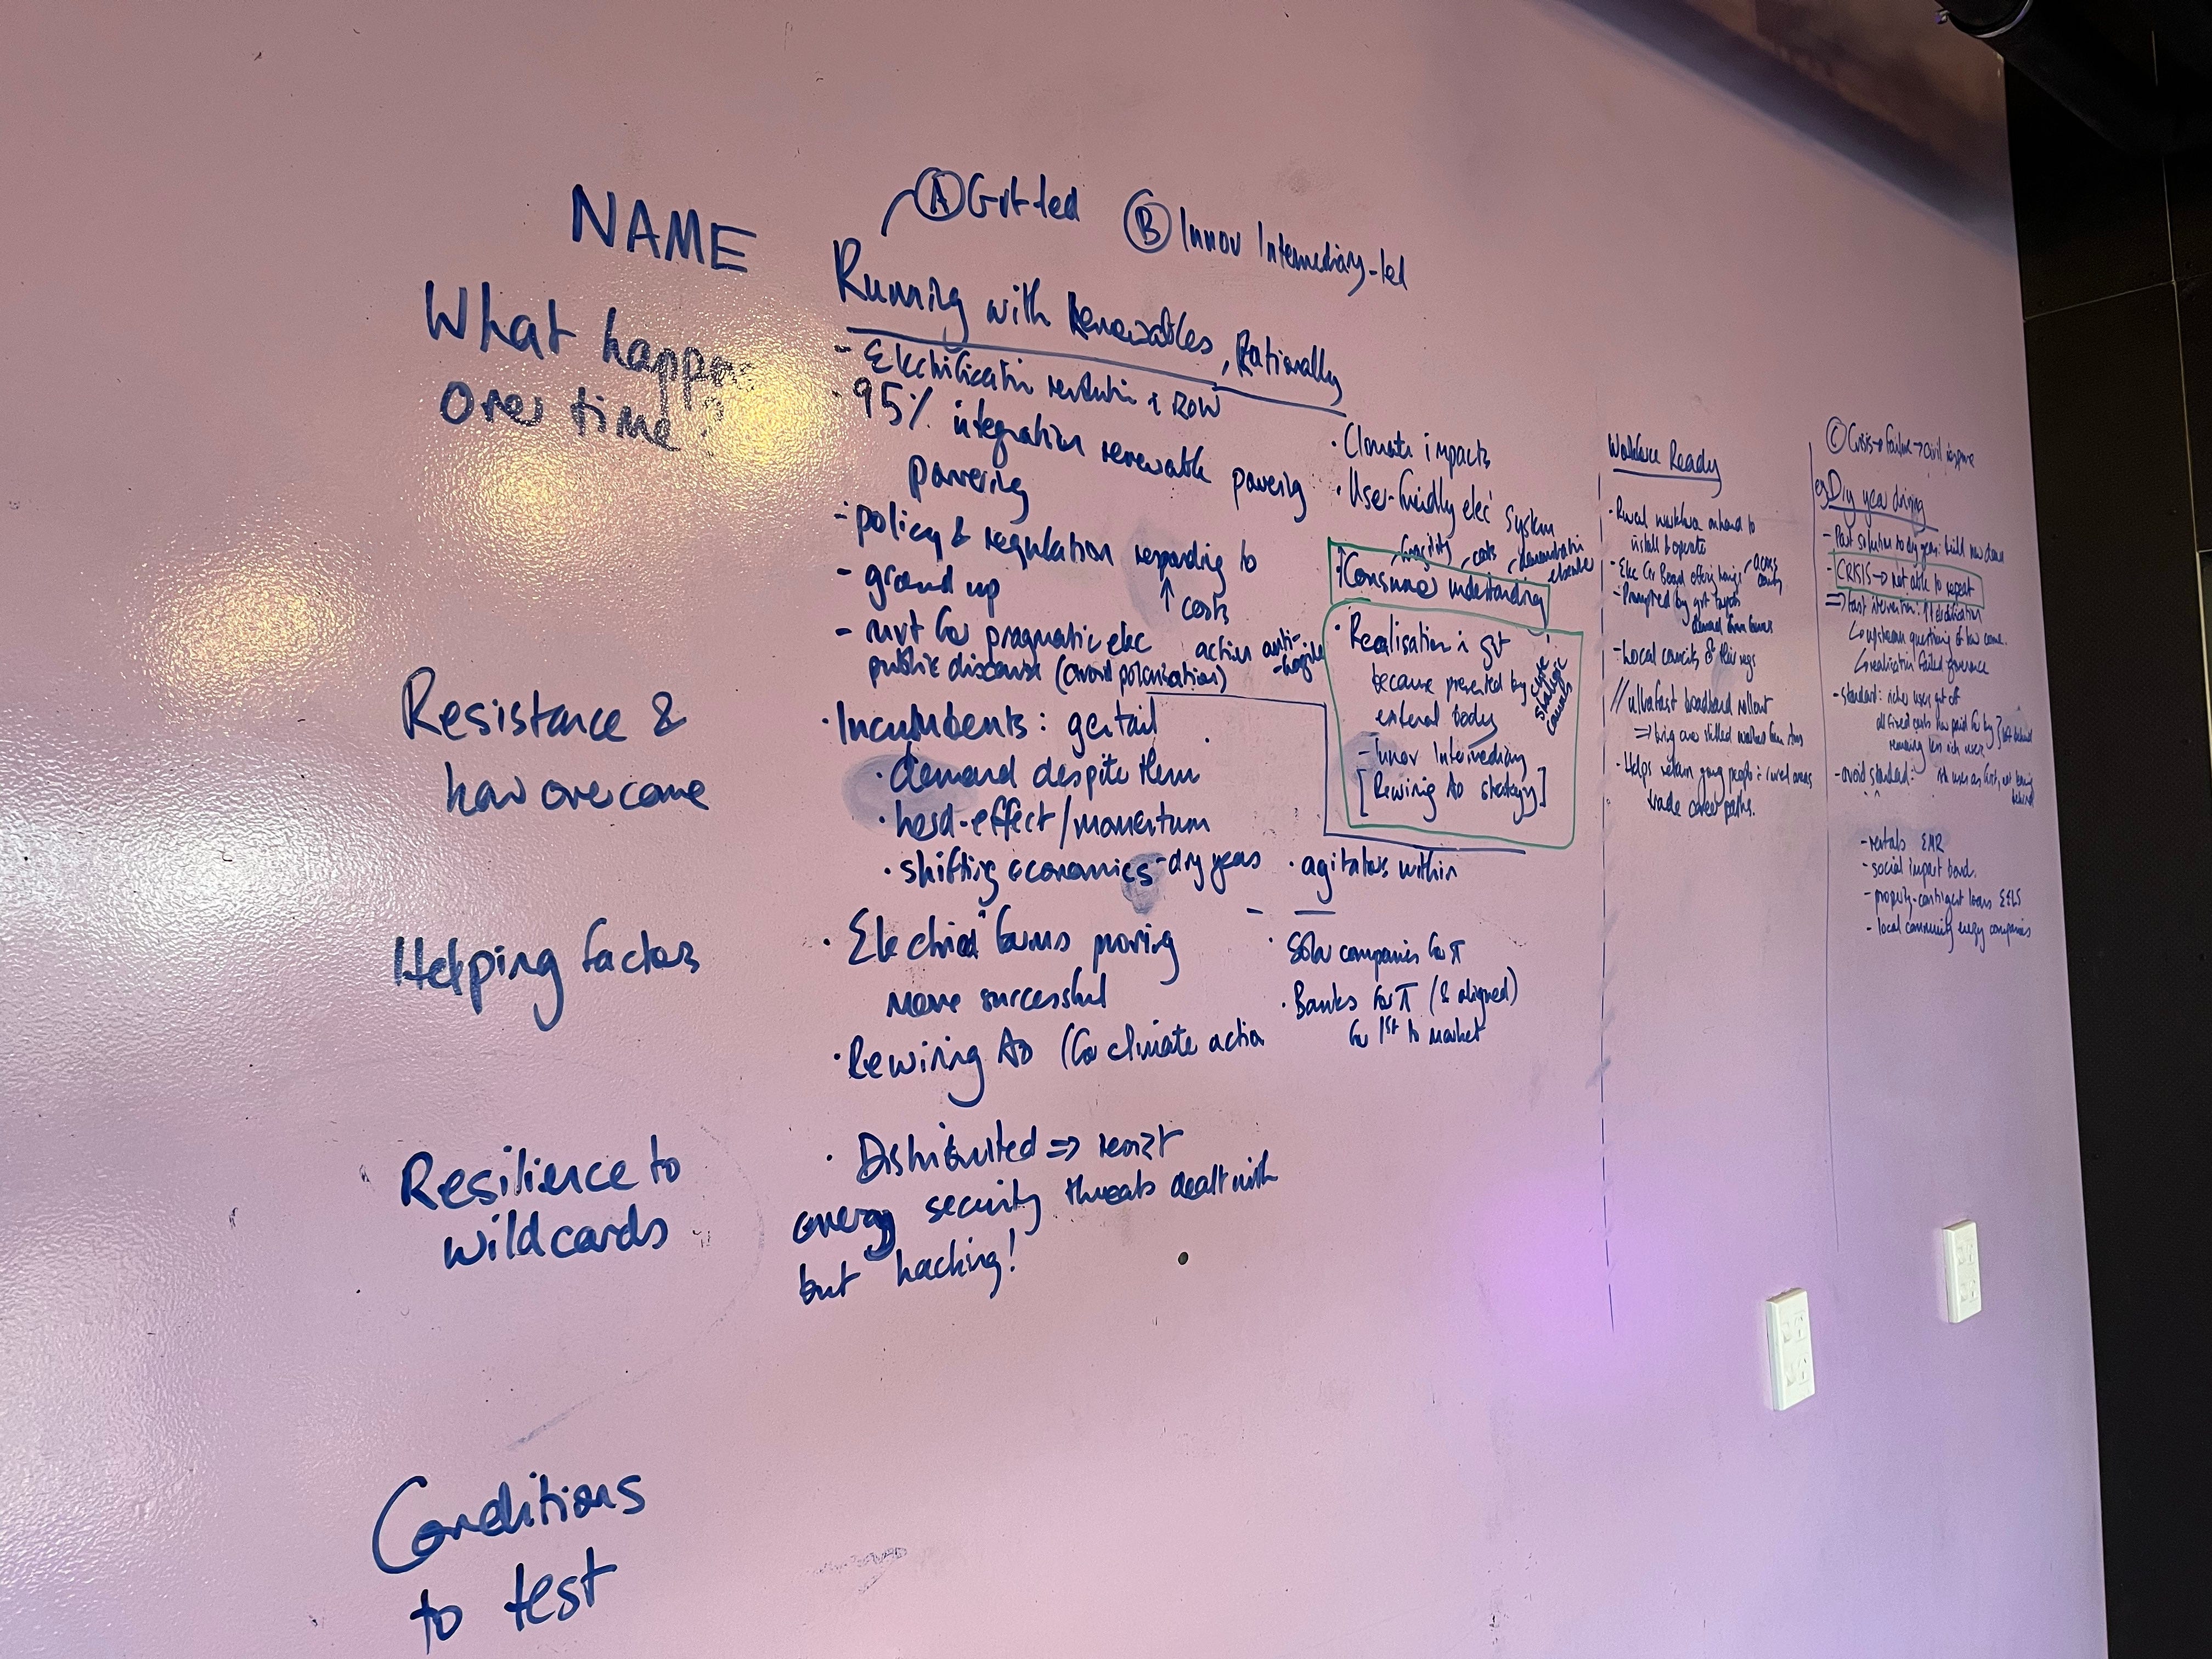 NAME
What happens
over time?
Resistance &
how overcome
Helping factors
Resilience to
wildcards
Conditions
to test
Ⓐ Gvt-led
Ⓑ Innov Intermediary-led
Running with Renewables, Rationally
- Electrification revolution i ROW
· 95% integration renewable powering
powering
- policy & regulation responding to
↑ costs
- ground up
- mvt for pragmatic elec action anti-fragile
public discourse (avoid polarisation)
· Incumbents: gentail
· demand despite them
· herd-effect/momentum
· shifting economics - dry years
· agitators within
· Electric farms proving
more successful
· Rewiring Ao (for climate action
· Solar companies for π
· Banks for π (& aligned)
for 1st to market
· Distributed ⇒ resist
energy security threats dealt with
but hacking!
· Climate impacts
· User-friendly elec system
fragility, costs, demonstration
elsewhere
↑ Consumer understanding
· Realisation i gvt
because presented by
external body
- Innov Intermediary
[Rewiring Ao strategy]
Workforce Ready
· Rural workforce on hand to
install & operate
- Prompted by gvt targets
demand from farms
- Local councils & their regs
// ultrafast broadband rollout
⇒ bring over skilled workers from
· Helps retain young people i rural areas
trade career paths.
Ⓒ Crisis → failure → civil response
eg Dry year driving
- Past solution to dry years: build new dams
- CRISIS → not able to repeat
⇒ fast intervention: ↑↑ electrification
↳ upstream questioning of how come.
↳ realisation failed governance
- standard: richer users get off
all fixed costs now paid for by
remaining less rich users } left behind
- avoid standard:
- rentals EMR
- social impact bond.
- property-contingent loans
- local community energy companies